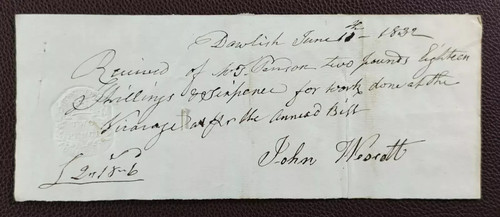 Dawlish June 11th 1832
Received of Mr T. Penson two pounds Eighteen
Shillings & Sixpence for work done at the
Vicarage as for the Annexed Bill
John Wescott
£2 " 18 " 6